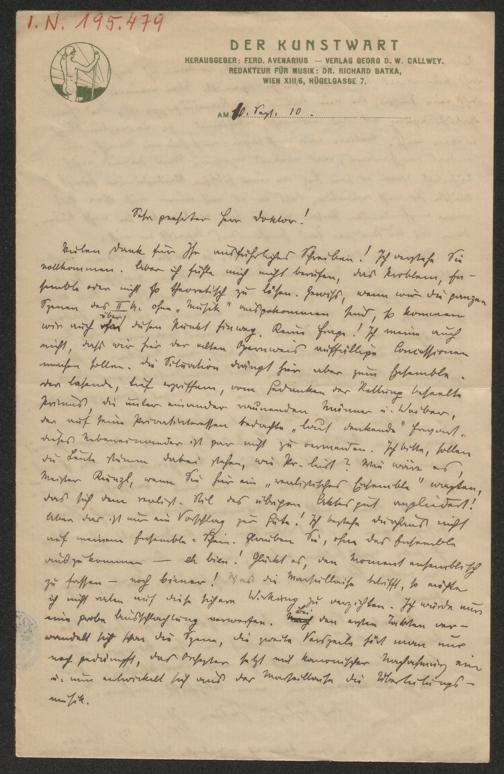 I. N. 195.479
DER KUNSTWART
HERAUSGEBER: FERD. AVENARIUS — VERLAG GEORG D. W. CALLWEY.
REDAKTEUR FÜR MUSIK: DR. RICHARD BATKA,
WIEN XIII/6, HÜGELGASSE 7.
AM 10. Sept. 10.
Sehr geehrter Herr Doktor!
Vielen Dank für Ihr ausführliches Schreiben! Ich verstehe Sie
vollkommen. Aber ich fühle mich nicht berufen, das Problem, En-
semble oder nicht so theoretisch zu lösen. Gewiss, wenn wir die ganzen
Szenen des II. A. ohne "Musik" ausgekommen sind, so kommen
wir auch über diesen Punkt hinweg. Keine Frage! Ich meine auch
nicht, dass wir hier der alten Opernweis Concessionen
machen sollen. Die Situation drängt hier aber zum Ensemble.
Der tief ergriffen, vom Gedanken der Rettung beseelte
die unter einander raunenden Männer u. Weiber,
der auf seine Privatinteressen bedachte "laut denkende"
dieses Nebeneinander ist gar nicht zu vermeiden. Ich bitte, sollen
die Leute stumm dabei stehen, wie Wie wäre es,
Meister Kienzl, wenn Sie hier ein "realistisches Ensemble" wagten,
das sich dem realist. Stil des übrigen Aktes gut angliedert!
Aber das ist nur ein Vorschlag zur Güte! Ich bestehe durchaus nicht
auf meinem Ensemble-Schein. Glauben Sie, ohne das Ensemble
auszukommen — eh bien! Glückt es, den Moment ensemblisch
zu fassen — noch besser! Was die Marseillaise betrifft, so möchte
ich nicht raten auf diese sichere Wirkung zu verzichten. Ich würde nur
eine grobe Ausschlachtung verwerfen. Bei den ersten Takten ver-
wandelt sich schon die Szene, die zweite Verszeile hört man nur
noch gedämpft, das Orchester setzt mit kanonischer Nachahmung ein
u. nun entwickelt sich aus der Marseillaise die Überleitungs-
musik.